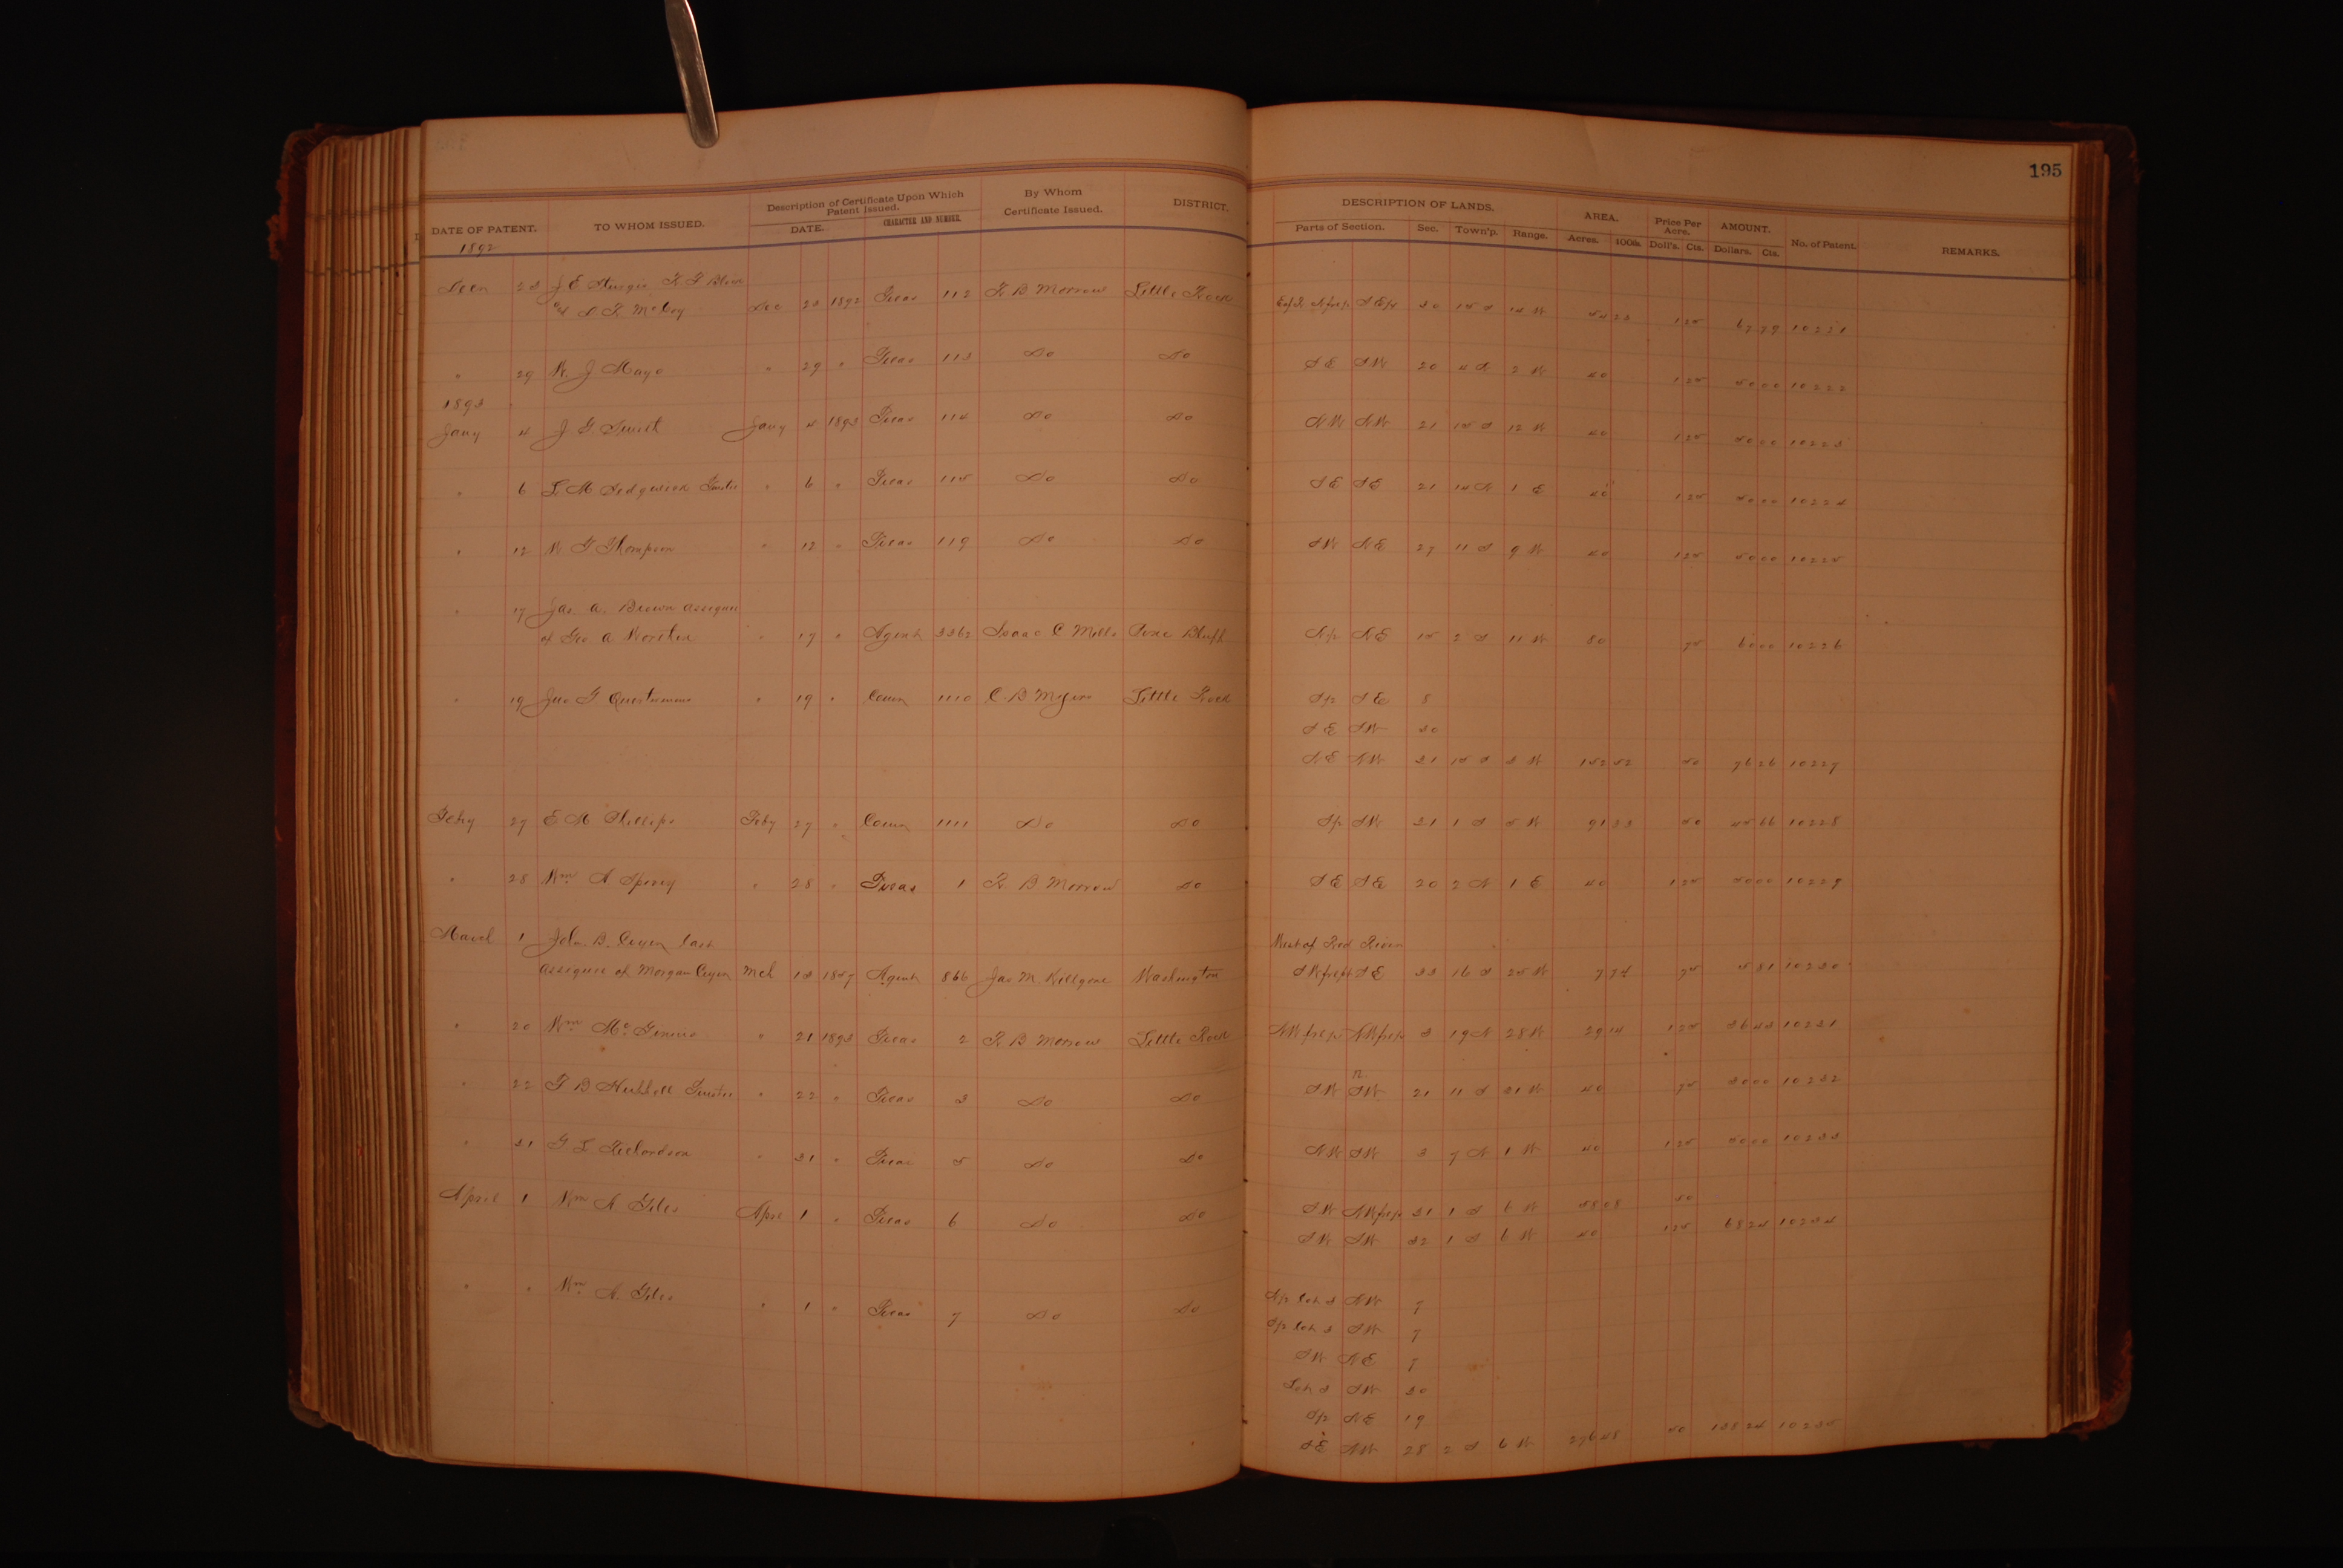 195
DATE OF PATENT. TO WHOM ISSUED. Description of Certificate Upon Which Patent Issued. DATE. CHARACTER AND NUMBER. By Whom Certificate Issued. DISTRICT. DESCRIPTION OF LANDS. Parts of Section. Sec. Town'p. Range. AREA. Acres. 100ths. Price Per Acre. Doll's. Cts. AMOUNT. Dollars. Cts. No. of Patent. REMARKS.
1892
23 J E Sturgis
& McCoy Dec 23 1892 Treas 112 R B Morrow Little Rock 30 15 S 14 W 54 23 1 25 67 79 10221
" 29 W. J Mayo " 29 " Treas 113 Do Do S E S W 20 4 N 2 W 40 1 25 50 00 10222
1893
Jany 4 J. G. Jany 4 1893 Treas 114 Do Do N W N W 21 15 S 12 W 40 1 25 50 00 10223
" 6 L. M Sedgwick Trustee " 6 " Treas 115 Do Do S E S E 21 14 N 1 E 40 1 25 50 00 10224
" 12 W T Thompson " 12 " Treas 119 Do Do S W N E 27 11 S 9 W 40 1 25 50 00 10225
" 17 Jas. A. Brown assignee
of Geo A " 17 " Agent 3362 Isaac C Mills Pine Bluff N½ N E 15 2 S 11 W 80 75 60 00 10226
" 19 Jno G. " 19 " Comr 1110 C. B Myers Little Rock S½ S E 8
S E S W 30
N E N W 31 15 S 3 W 152 52 50 76 26 10227
Feby 27 E M Phillips Feby 27 " Comr 1111 Do Do S½ S W 31 1 S 5 W 91 33 50 45 66 10228
" 28 Wm A. Spivey " 28 " Treas 1 R B Morrow Do S E S E 20 2 N 1 E 40 1 25 50 00 10229
March 1 John B. West of Red River
assignee of Morgan Mch 13 1857 Agent 866 Jas M. Killgore Washington S W S E 33 16 S 25 W 7 74 75 5 81 10230
" 20 Wm " 21 1893 Treas 2 R B Morrow Little Rock 3 19 N 28 W 29 14 1 25 36 43 10231
" 22 T B Hubbell Trustee " 22 " Treas 3 Do Do S W n S W 21 11 S 31 W 40 75 30 00 10232
" 31 G L Richardson " 31 " Treas 5 Do Do N W S W 3 7 N 1 W 40 1 25 50 00 10233
April 1 Wm A Giles Apr 1 " Treas 6 Do Do S W 31 1 S 6 W 50
S W S W 32 1 S 6 W 40 1 25 10234
" " Wm A. Giles " 1 " Treas 7 Do Do N½ Lot 2 N W 7
S W 7
S W N E 7
S W 30
S½ N E 19
S E N W 28 2 S 6 W 276 48 50 138 24 10235